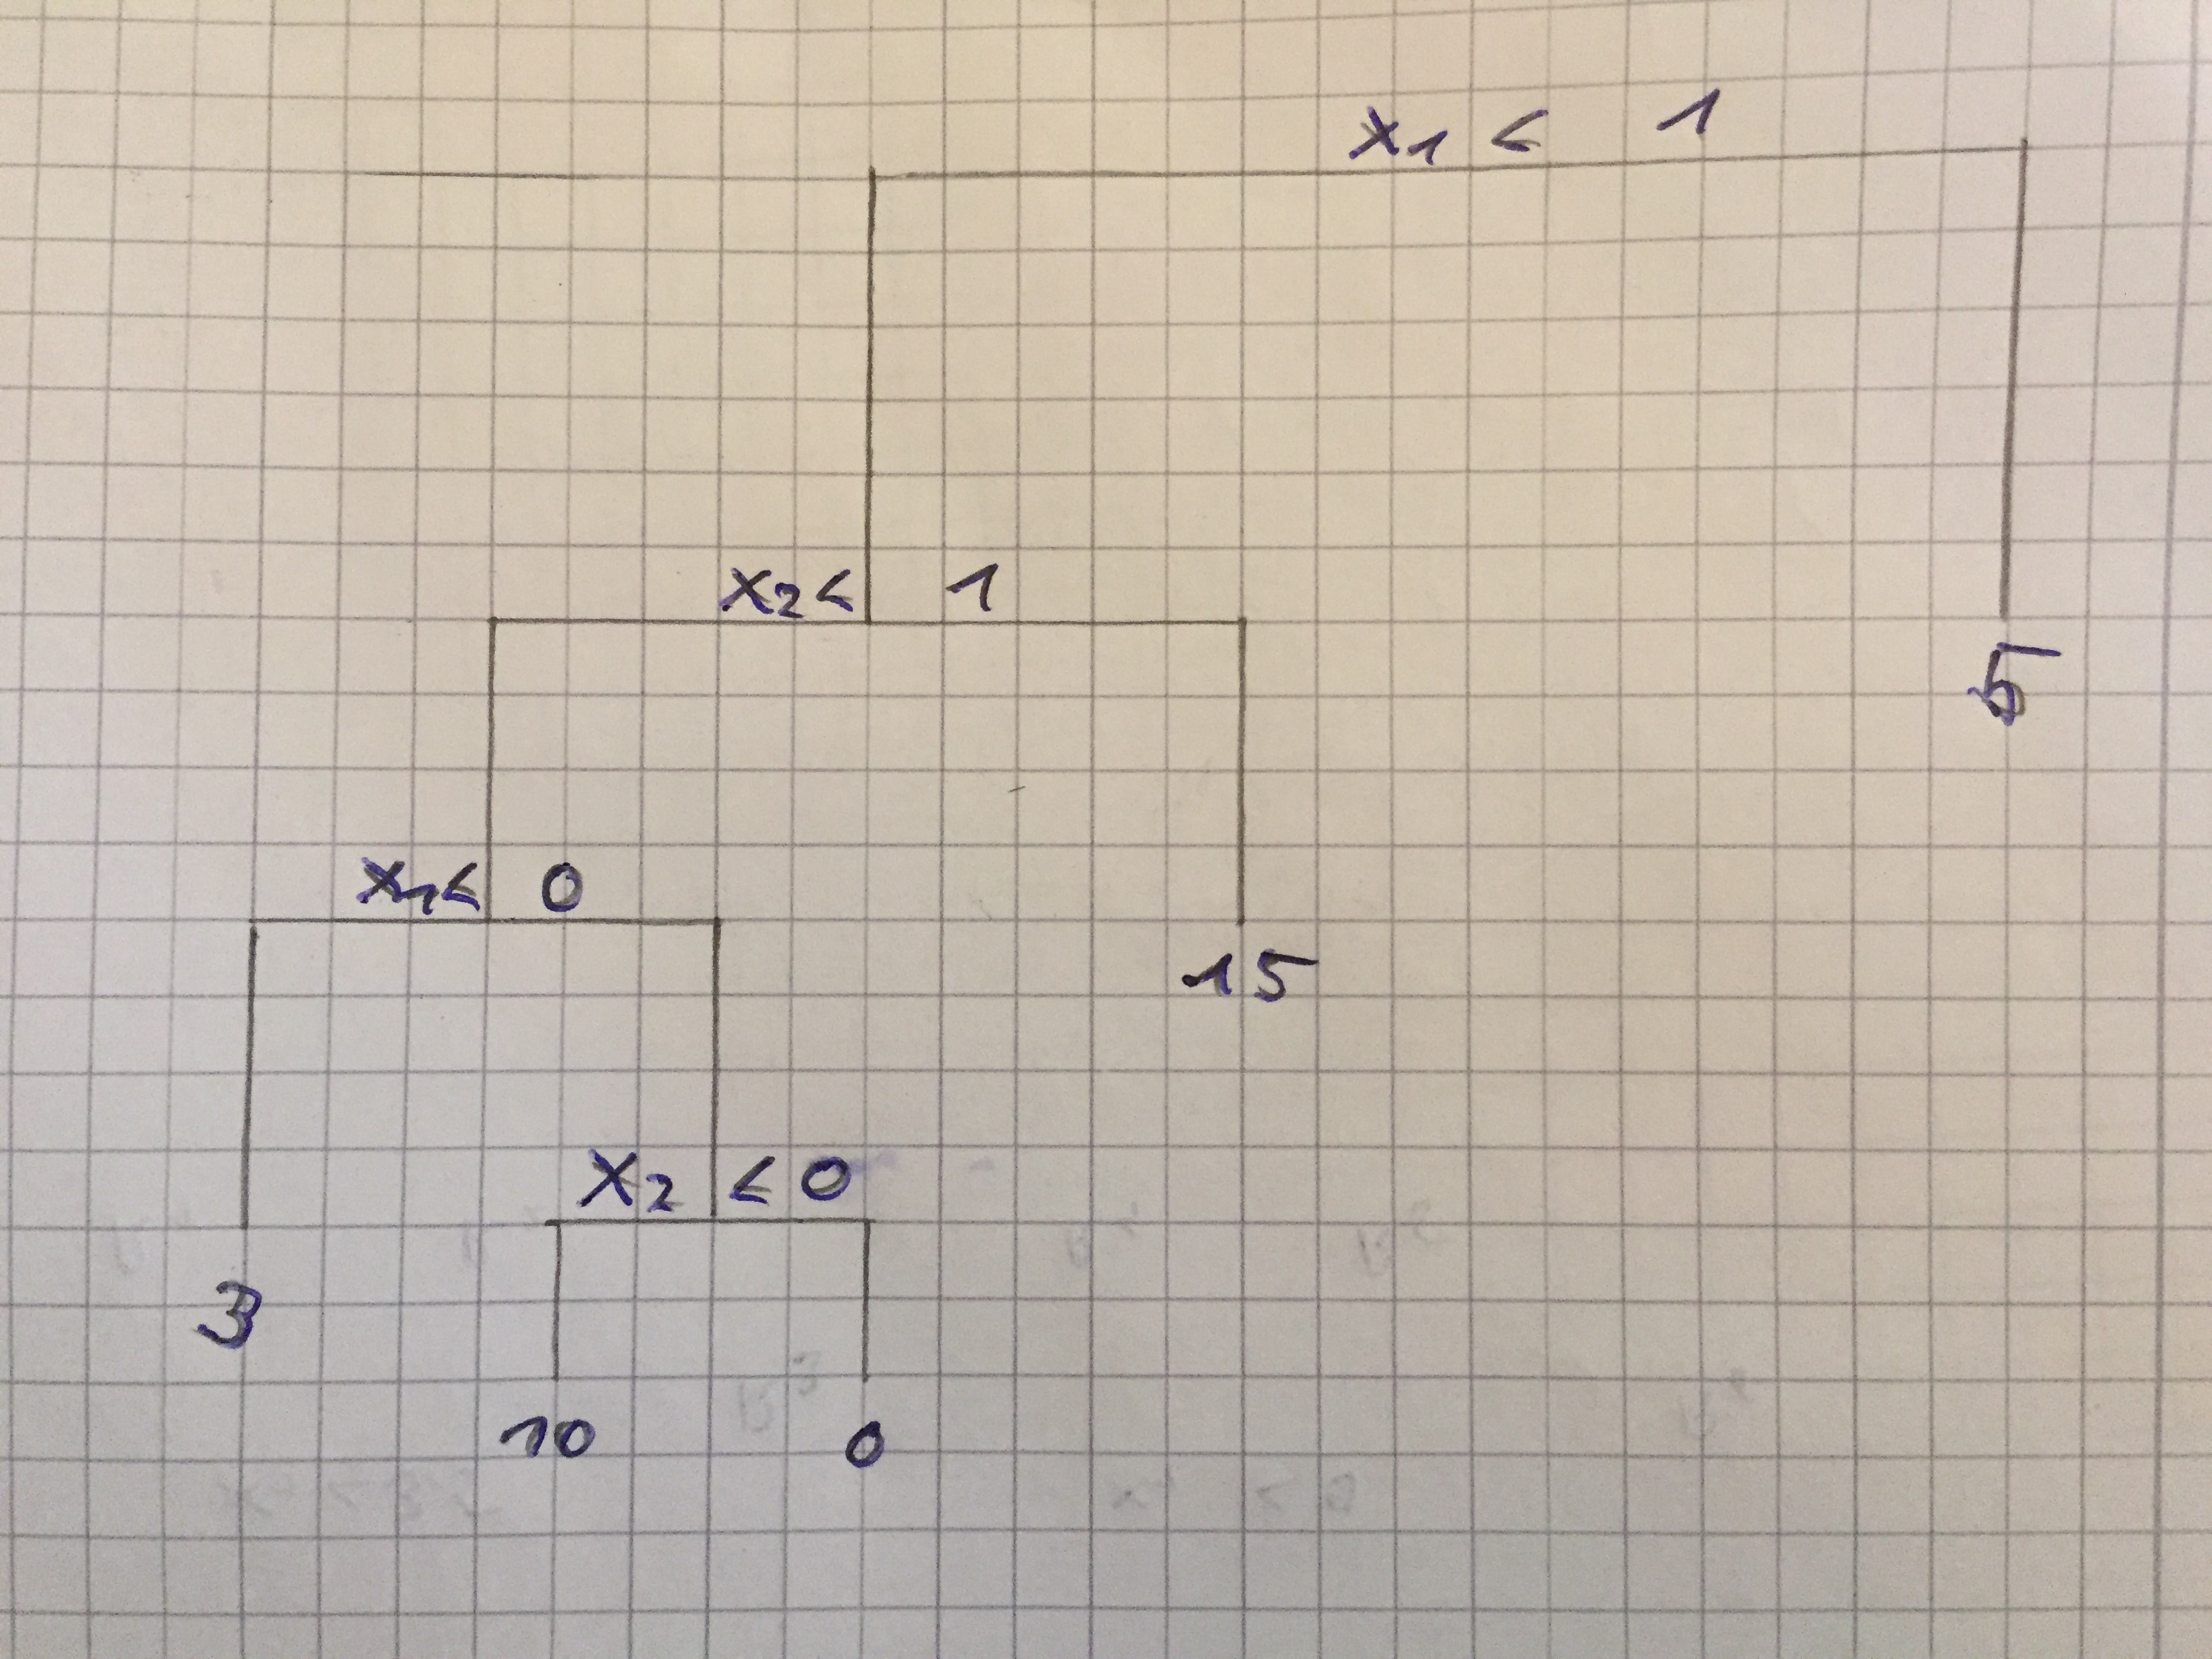 x₁ < 1
x₂ < 1
5
x₁ < 0
15
x₂ < 0
3
10 0